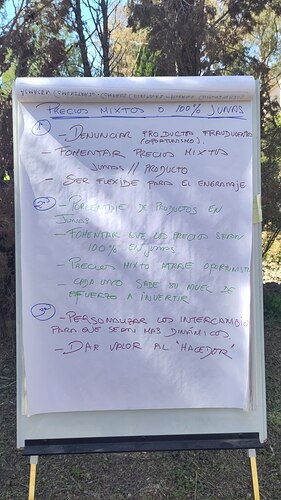 PRECIOS MIXTOS O 100% JUNAS
1º
- DENUNCIAR PRODUCTOS FRAUDULENTO
(OPORTUNISMO).
- FOMENTAR PRECIOS MIXTOS
JUNAS // PRODUCTO
- SER FLEXIBLE PARA EL ENGRANAJE
2º
- PORCENTAJE DE PRODUCTOS EN
JUNAS
- FOMENTAR QUE LOS PRECIOS SEAN
100% EN JUNAS
- PRECIOS MIXTO ATRAE OPORTUNISTA
- CADA UNO SABE SU NIVEL DE
ESFUERZO A INVERTIR
3º
- PERSONALIZAR LOS INTERCAMBIO
PARA QUE SEAN MAS DINÁMICOS.
- DAR VALOR AL "HACEDOR"